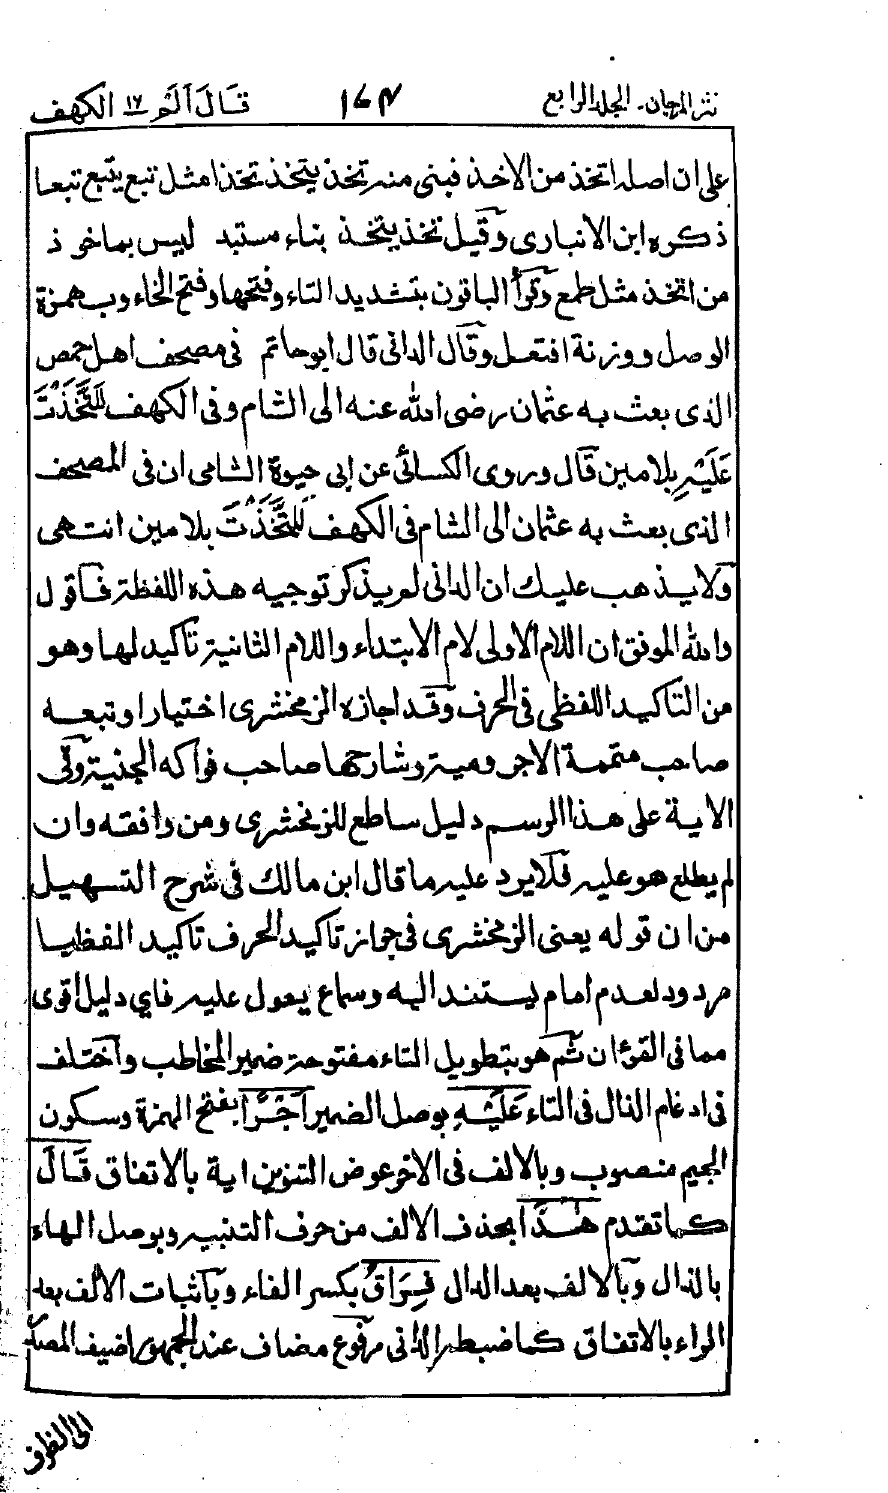 نثر المرجان۔ الجلد الرابع ١٦٣ قَالَ اَلَمْ ١٦ الكهف
على ان اصله اتخذ من الاخذ فبنى منه تخذ يتخذ تخذا مثل تبع يتبع تبعا
ذكره ابن الانبارى وقيل تخذ يتخذ بناء مستبد ليس بماخوذ
من اتخذ مثل طمع وقرأ الباقون بتشديد التاء وفتحها وفتح الخاء وب همزة
الوصل ووزنة افتعل وقال الدانى قال ابو حاتم فى مصحف اهل حمص
الذى بعث به عثمان رضى الله عنه الى الشام وفى الكهف لَلتَّخَذْتَ
عَلَيْهِ بلامين قال وروى الكسائى عن ابى حيوة الشامى ان فى المصحف
الذى بعث به عثمان الى الشام فى الكهف لَلتَّخَذْتَ بلامين انتهى
ولا يذهب عليك ان الدانى لم يذكر توجيه هذه اللفظة فاقول
والله الموفق ان اللام الاولى لام الابتداء واللام الثانية تاكيد لها وهو
من التاكيد اللفظى فى الحرف وقد اجازه الزمخشرى اختيارا وتبعه
صاحب متممة الاجرومية وشارحها صاحب فواكه الجنية وفى
الاية على هذا الرسم دليل ساطع للزمخشرى ومن وافقه وان
لم يطلع هو عليه فلا يرد عليه ما قال ابن مالك فى شرح التسهيل
من ان قوله يعنى الزمخشرى فى جواز تاكيد الحرف تاكيد الفظيا
مردود لعدم امام يستند اليه وسماع يعول عليه فاي دليل اقوى
مما فى القرءان ثم هو بتطويل التاء مفتوحة ضمير المخاطب واختلف
فى ادغام الذال فى التاء عَلَيْهِ بوصل الضمير اَجْرًا بفتح الهمزة وسكون
الجيم منصوب وبالالف فى الاخر عوض التنوين اية بالاتفاق قَالَ
كما تقدم هٰذَا بحذف الالف من حرف التنبيه وبوصل الهاء
بالذال وبالالف بعد الدال فِرَاقُ بكسر الفاء وباثبات الالف بعد
الراء بالاتفاق كما ضبطه الدانى مرفوع مضاف عند الجمهور اضيف المصدر
الى الظرف